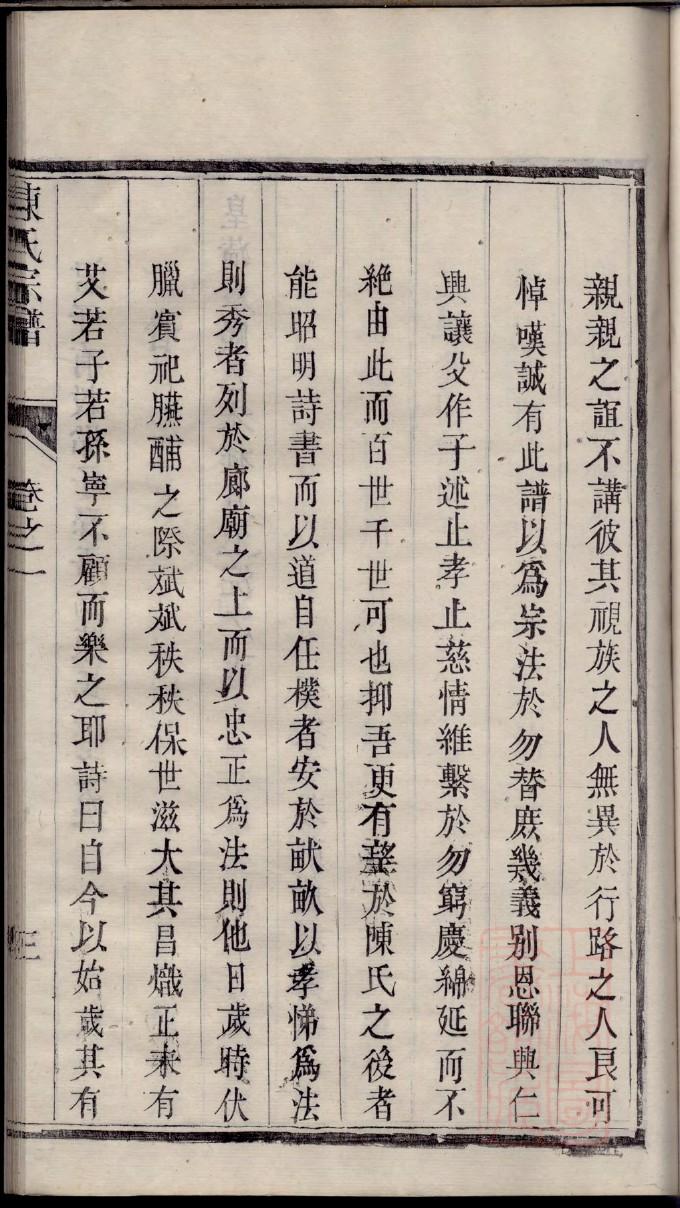 親親之誼不講彼其視族之人無異於行路之人良可
悼嘆誠有此譜以爲宗法於勿替庶幾義別恩聯興仁
興讓父作子述止孝止慈情維繫於勿窮慶綿延而不
絶由此而百世千世可也抑吾更有望於陳氏之後者
能昭明詩書而以道自任樸者安於畎畝以孝悌爲法
則秀者列於廊廟之上而以忠正爲法則他日歲時伏
臘賓祀臙酺之際斌斌秩秩保世滋大其昌熾正未有
艾若子若孫寧不顧而樂之耶詩曰自今以始歲其有
陳氏宗譜
卷之一
三